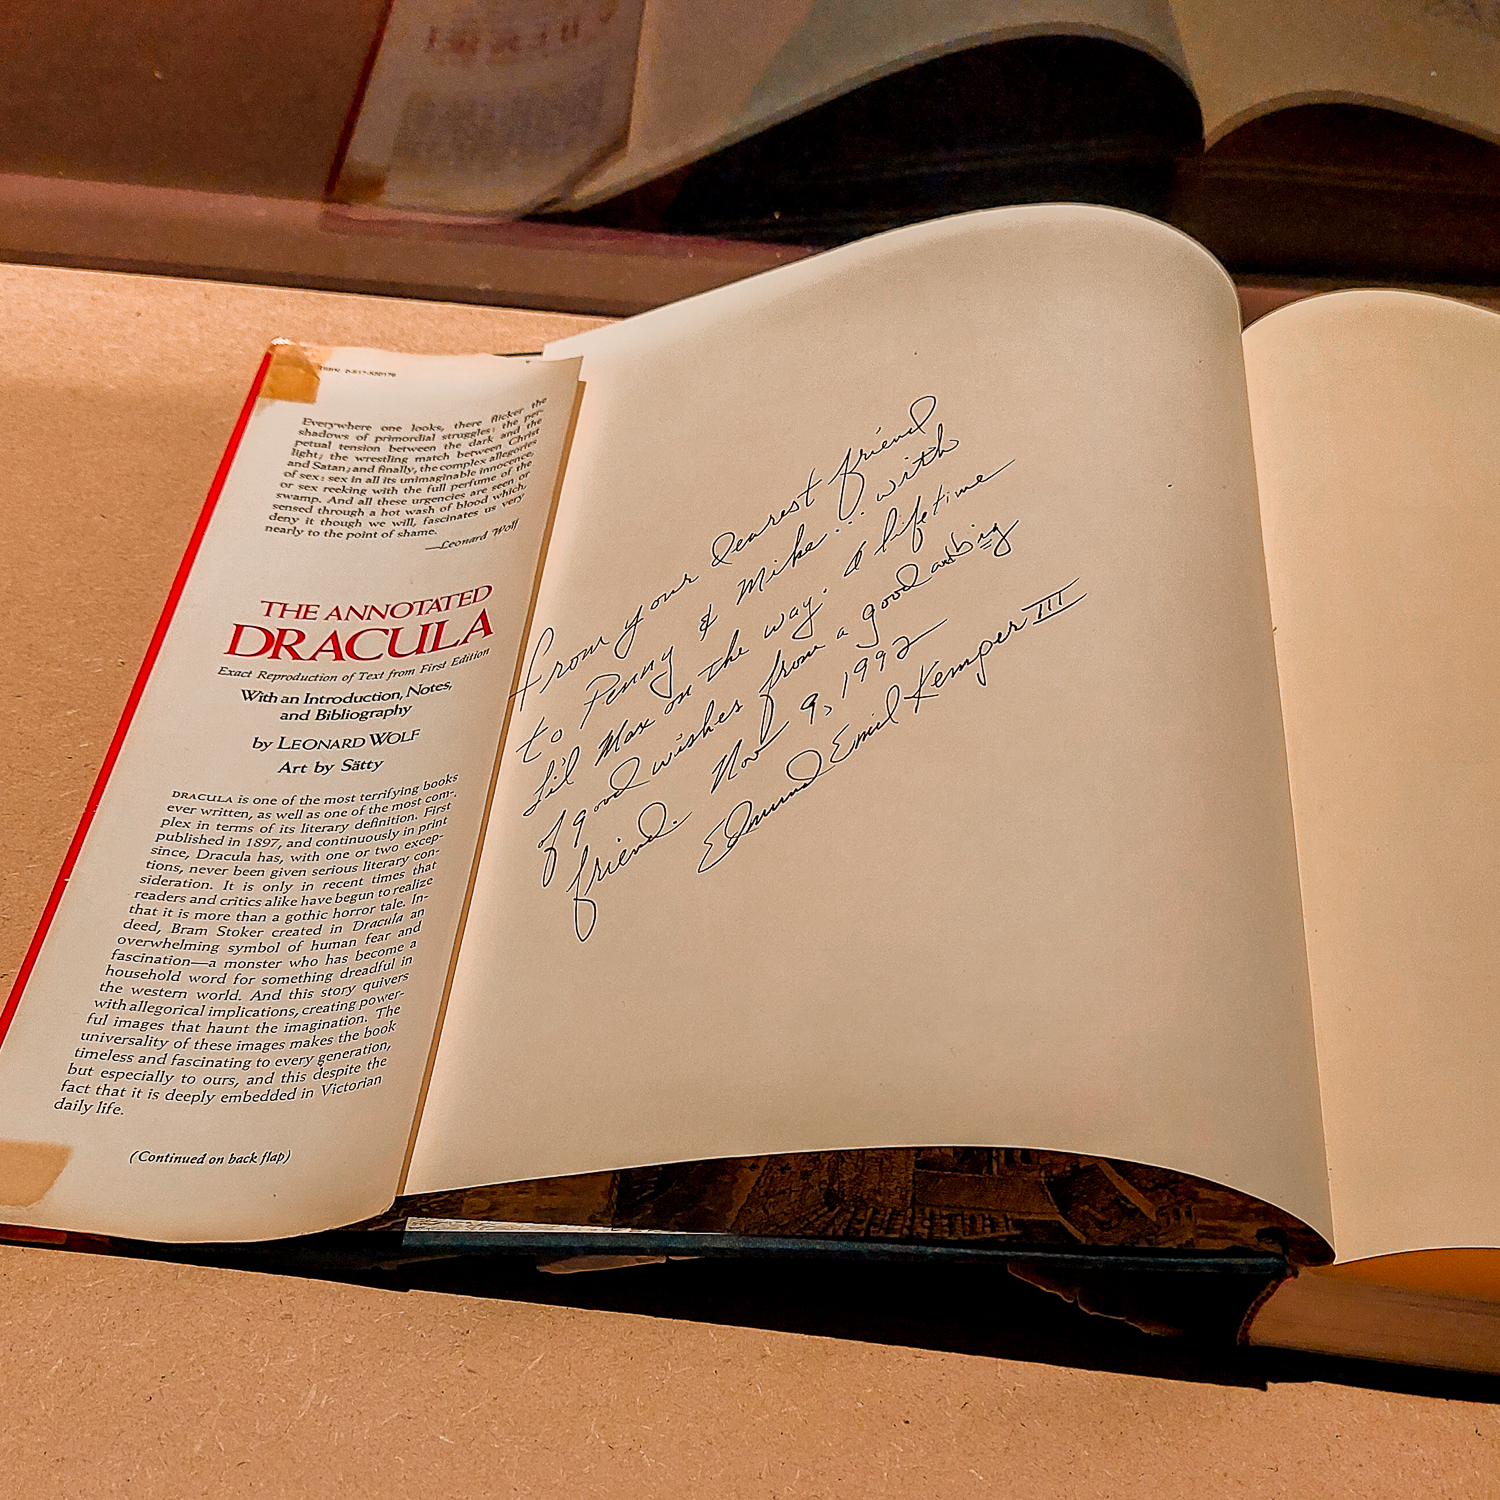 Everywhere one looks, there flicker the
shadows of primordial struggles: the per-
petual tension between the dark and the
light; the wrestling match between Christ
and Satan; and finally, the complex allegories
of sex: sex in all its unimaginable innocence,
or sex reeking with the full perfume of the
swamp. And all these urgencies are seen or
sensed through a hot wash of blood which,
deny it though we will, fascinates us very
nearly to the point of shame.
—Leonard Wolf
THE ANNOTATED
DRACULA
Exact Reproduction of Text from First Edition
With an Introduction, Notes,
and Bibliography
by LEONARD WOLF
Art by Sätty
DRACULA is one of the most terrifying books
ever written, as well as one of the most com-
plex in terms of its literary definition. First
published in 1897, and continuously in print
since, Dracula has, with one or two excep-
tions, never been given serious literary con-
sideration. It is only in recent times that
readers and critics alike have begun to realize
that it is more than a gothic horror tale. In-
deed, Bram Stoker created in Dracula an
overwhelming symbol of human fear and
fascination—a monster who has become a
household word for something dreadful in
the western world. And this story quivers
with allegorical implications, creating power-
ful images that haunt the imagination. The
universality of these images makes the book
timeless and fascinating to every generation,
but especially to ours, and this despite the
fact that it is deeply embedded in Victorian
daily life.
(Continued on back flap)
From your dearest friend
to Penny & Mike... with
Li'l Max on the way. A lifetime
of good wishes from a good and big
friend. Nov 9, 1992
Edmund Emil Kemper III